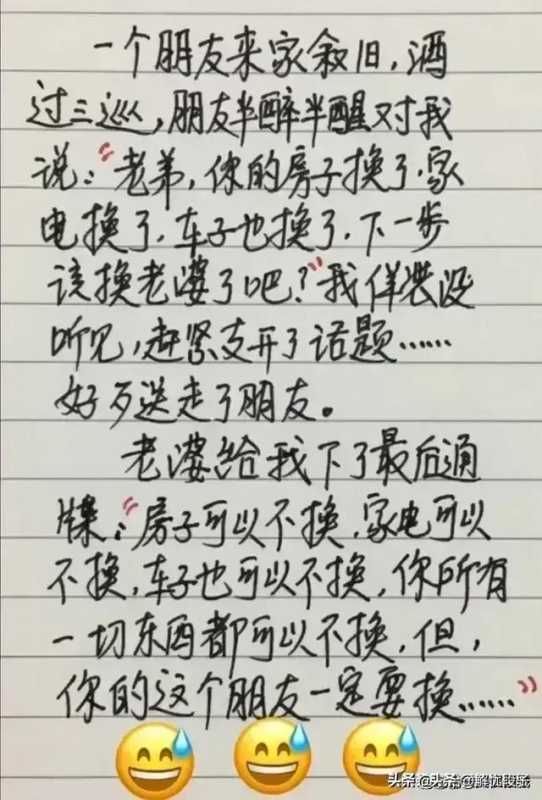 一个朋友来家叙旧,酒
过三巡,朋友半醉半醒对我
说:“老弟,你的房子换了.家
电换了.车子也换了.下一步
该换老婆了吧?”我佯装没
听见,赶紧支开了话题……
好歹送走了朋友。
老婆给我下了最后通
牒:“房子可以不换.家电可以
不换,车子也可以不换,你所有
一切东西都可以不换.但,
你的这个朋友一定要换……”
头条@解忧段孩